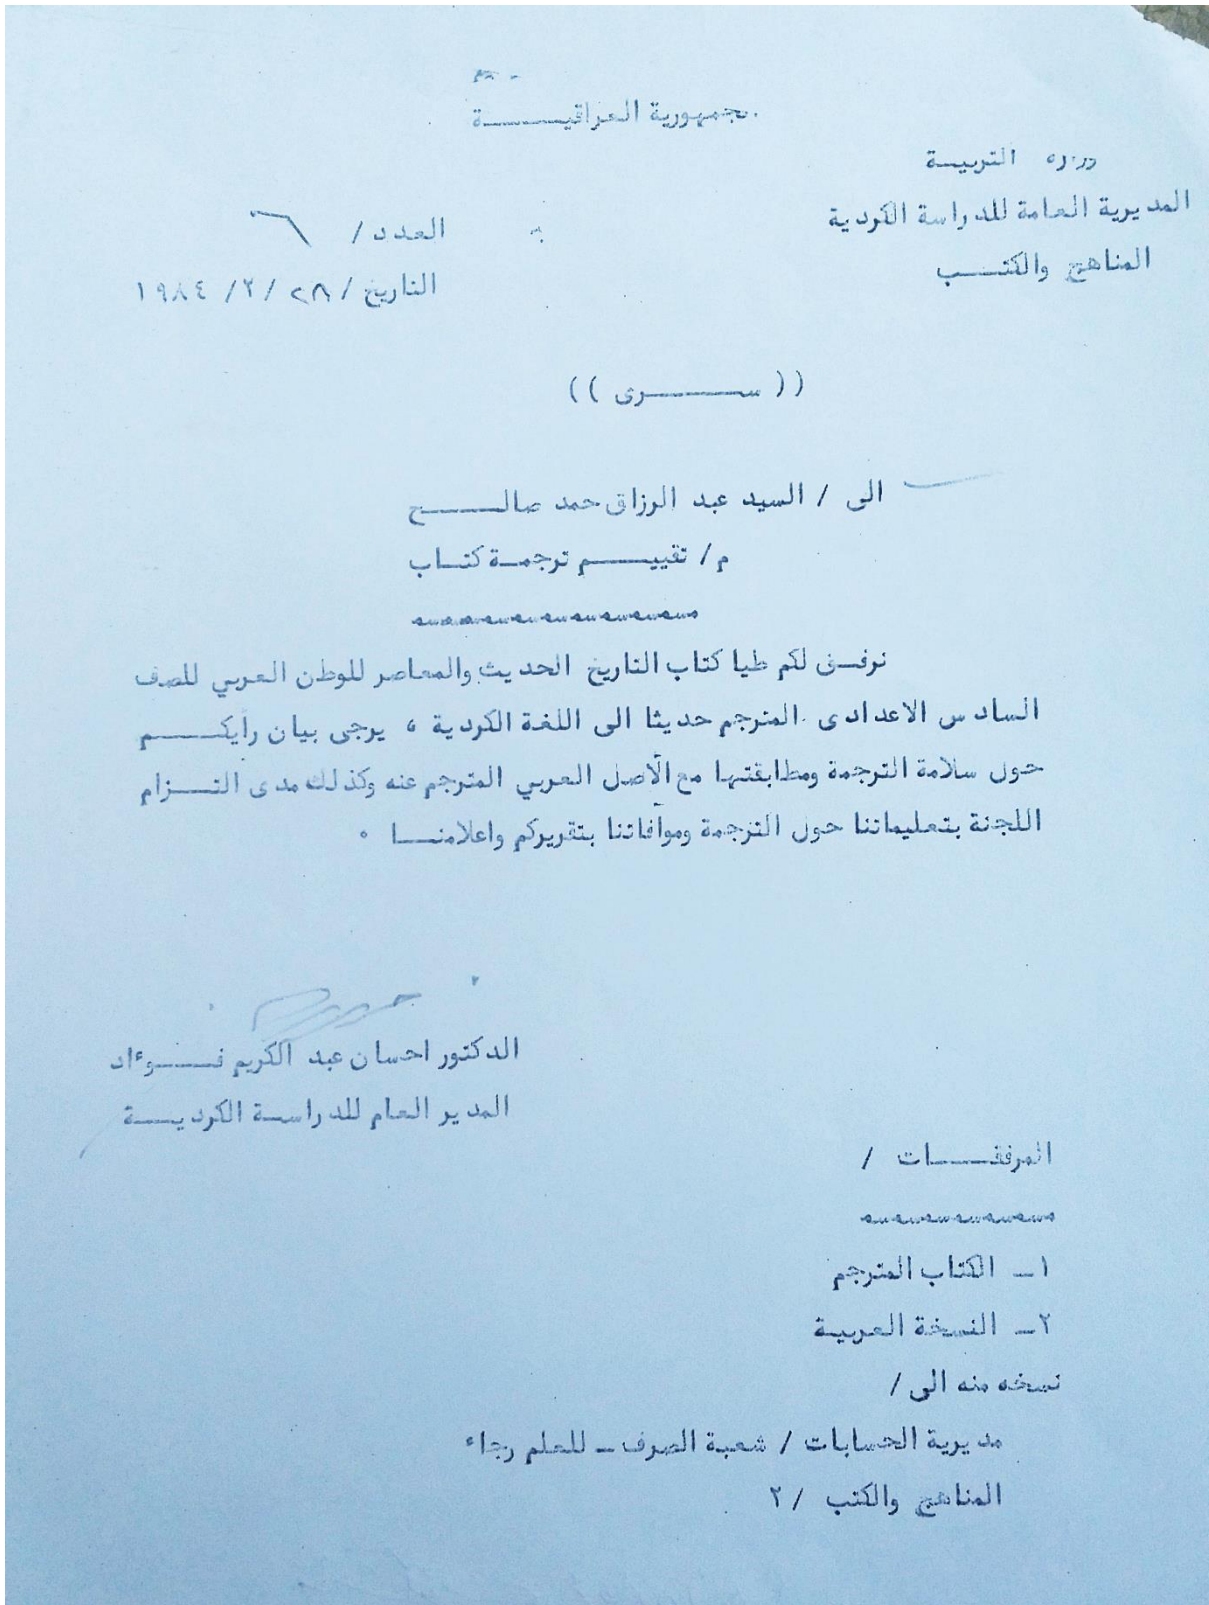 جمهورية العراقية
وزارة التربية
المديرية العامة للدراسة الكردية
المناهج والكتب
العدد / ٦
التاريخ / ٢٨ / ٢ / ١٩٨٤
(( سرى ))
الى / السيد عبد الرزاق حمد صالح
م/ تقييم ترجمة كتاب
نرفق لكم طيا كتاب التاريخ الحديث والمعاصر للوطن العربي للصف
السادس الاعدادى المترجم حديثا الى اللغة الكردية ، يرجى بيان رأيكم
حول سلامة الترجمة ومطابقتها مع الأصل العربي المترجم عنه وكذلك مدى التزام
اللجنة بتعليماتنا حول الترجمة وموافاتنا بتقريركم واعلامنا ٠
الدكتور احسان عبد الكريم فوءاد
المدير العام للدراسة الكردية
المرفقات /
١ــ الكتاب المترجم
٢ــ النسخة العربية
نسخه منه الى /
مديرية الحسابات / شعبة الصرف ــ للعلم رجاء
المناهج والكتب / ٢